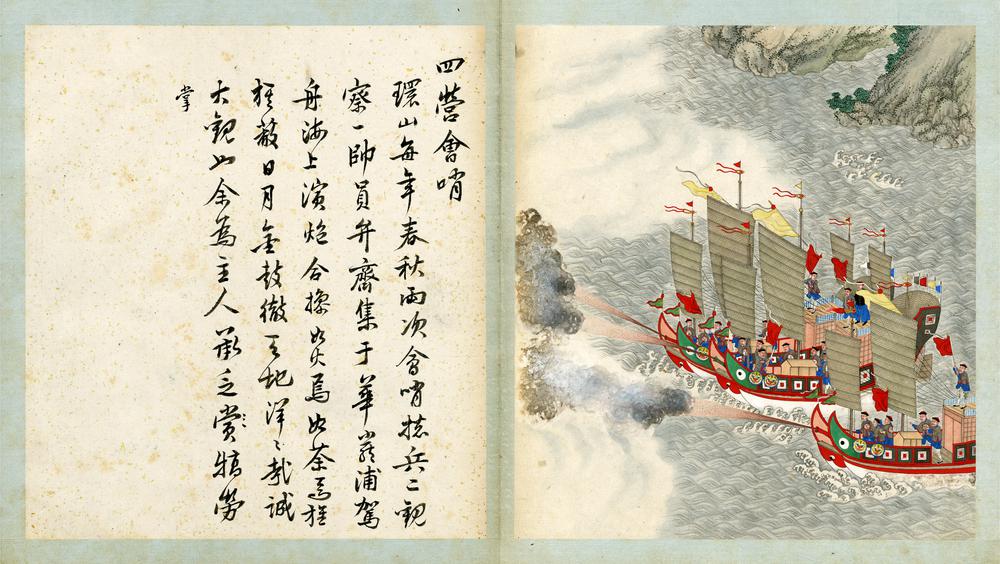 四營會哨
環山每年春秋兩次會哨總兵二觀
察一帥員弁齊集于華嚴浦駕
舟海上演炮合操如火焉如荼焉旌
旗蔽日月金鼓徹天地洋〻哉誠
大觀也余為主人承乏賞〻犒勞
掌